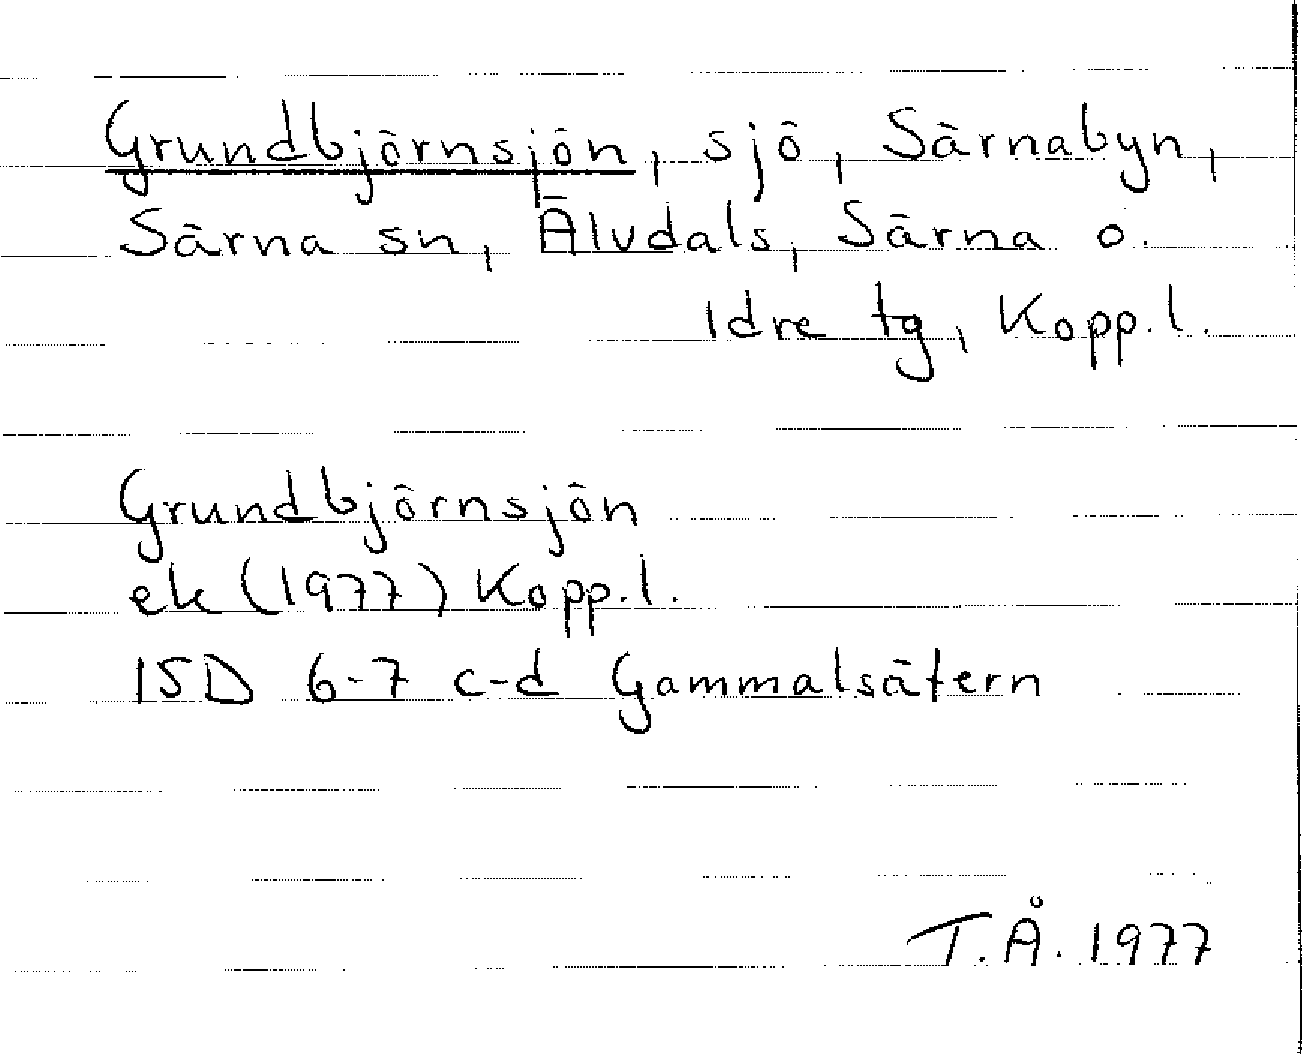 Grundbjörnsjön, sjö, Särnabyn,
Särna sn, Älvdals, Särna o.
Idre tg, Kopp. l.
Grundbjörnsjön
ek (1977) Kopp. l.
15D 6-7 c-d Gammalsätern
T.Å. 1977